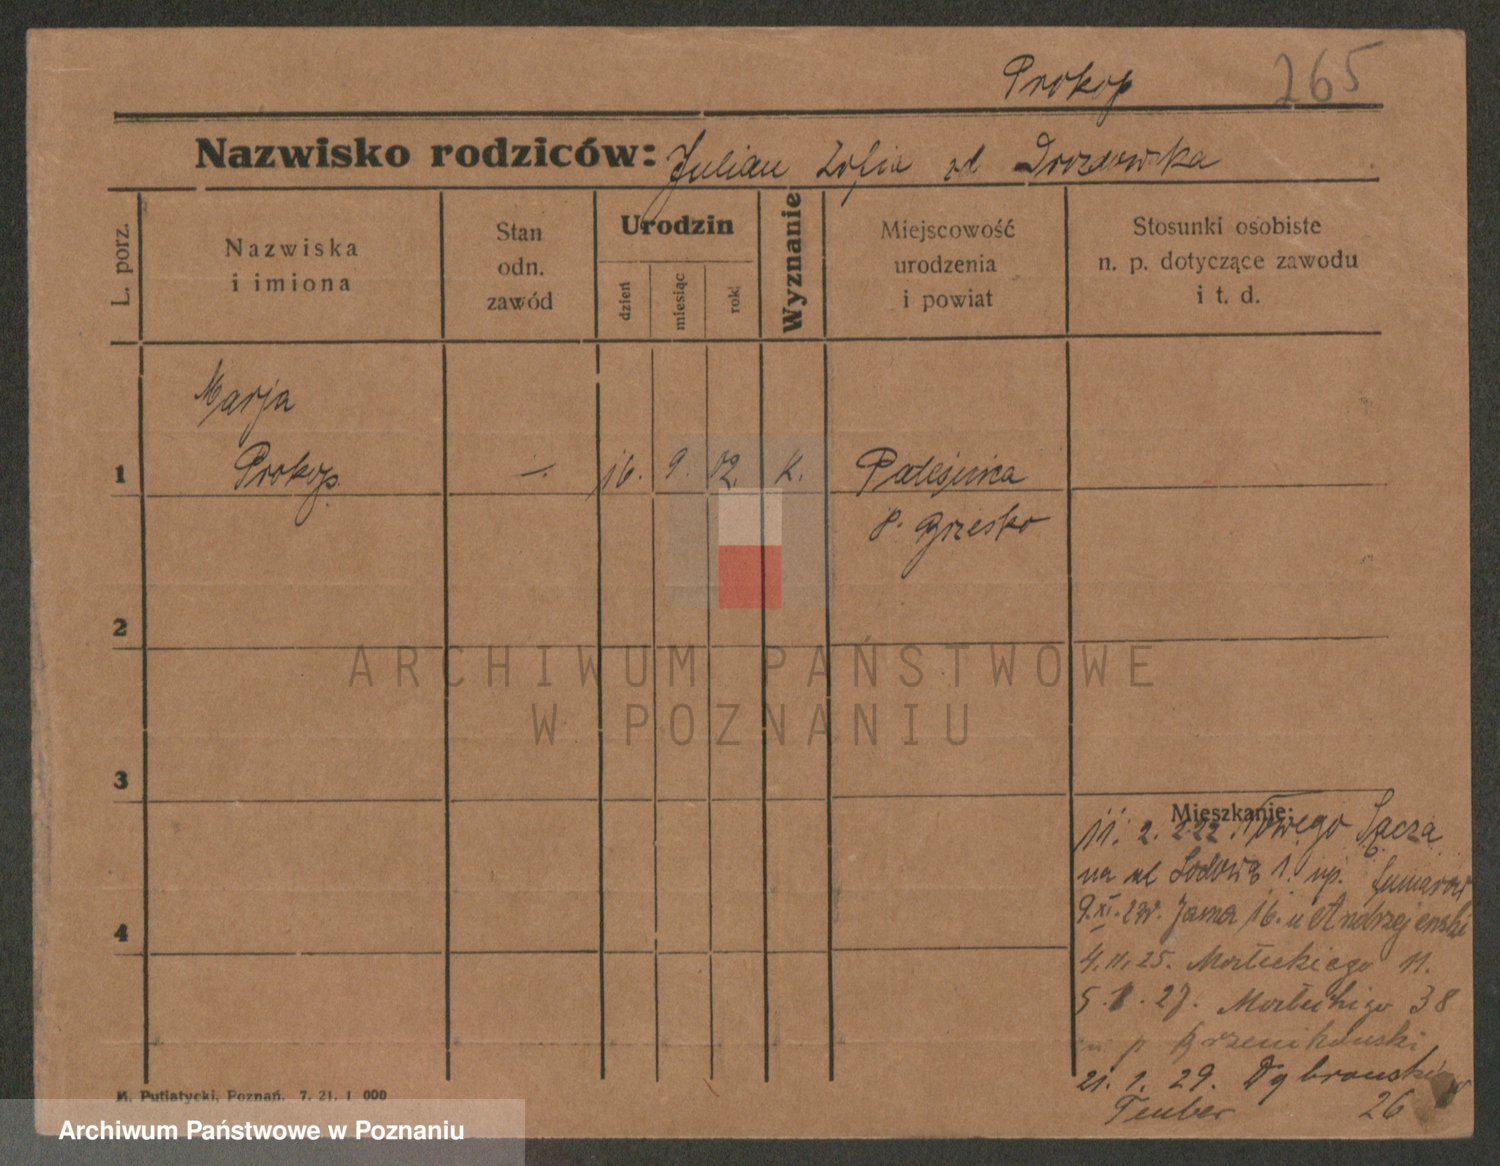 Prokop 265
Nazwisko rodziców: Julian Zofia od Drozdowska
L. porz.
Nazwiska
i imiona
Stan
odn.
zawód
Urodzin
dzień
miesiąc
rok
Wyznanie
Miejscowość
urodzenia
i powiat
Stosunki osobiste
n. p. dotyczące zawodu
i t. d.
Marja
1 Prokop. —. 16. 9. 02. K.
p. Brzesko
2
ARCHIWUM PAŃSTWOWE
W POZNANIU
3
Mieszkanie:
11. 2. 222 Nowego Sącza
na ul 1. up.
9. XI. Jasna 16. u Andrzejewski
4. 11. 25. 11.
5. 27. 38
p
21. 1. 29. Dąbrowskiego
Teuber 26
4
M. Putiatycki, Poznań. 7. 21. 1 000
Archiwum Państwowe w Poznaniu